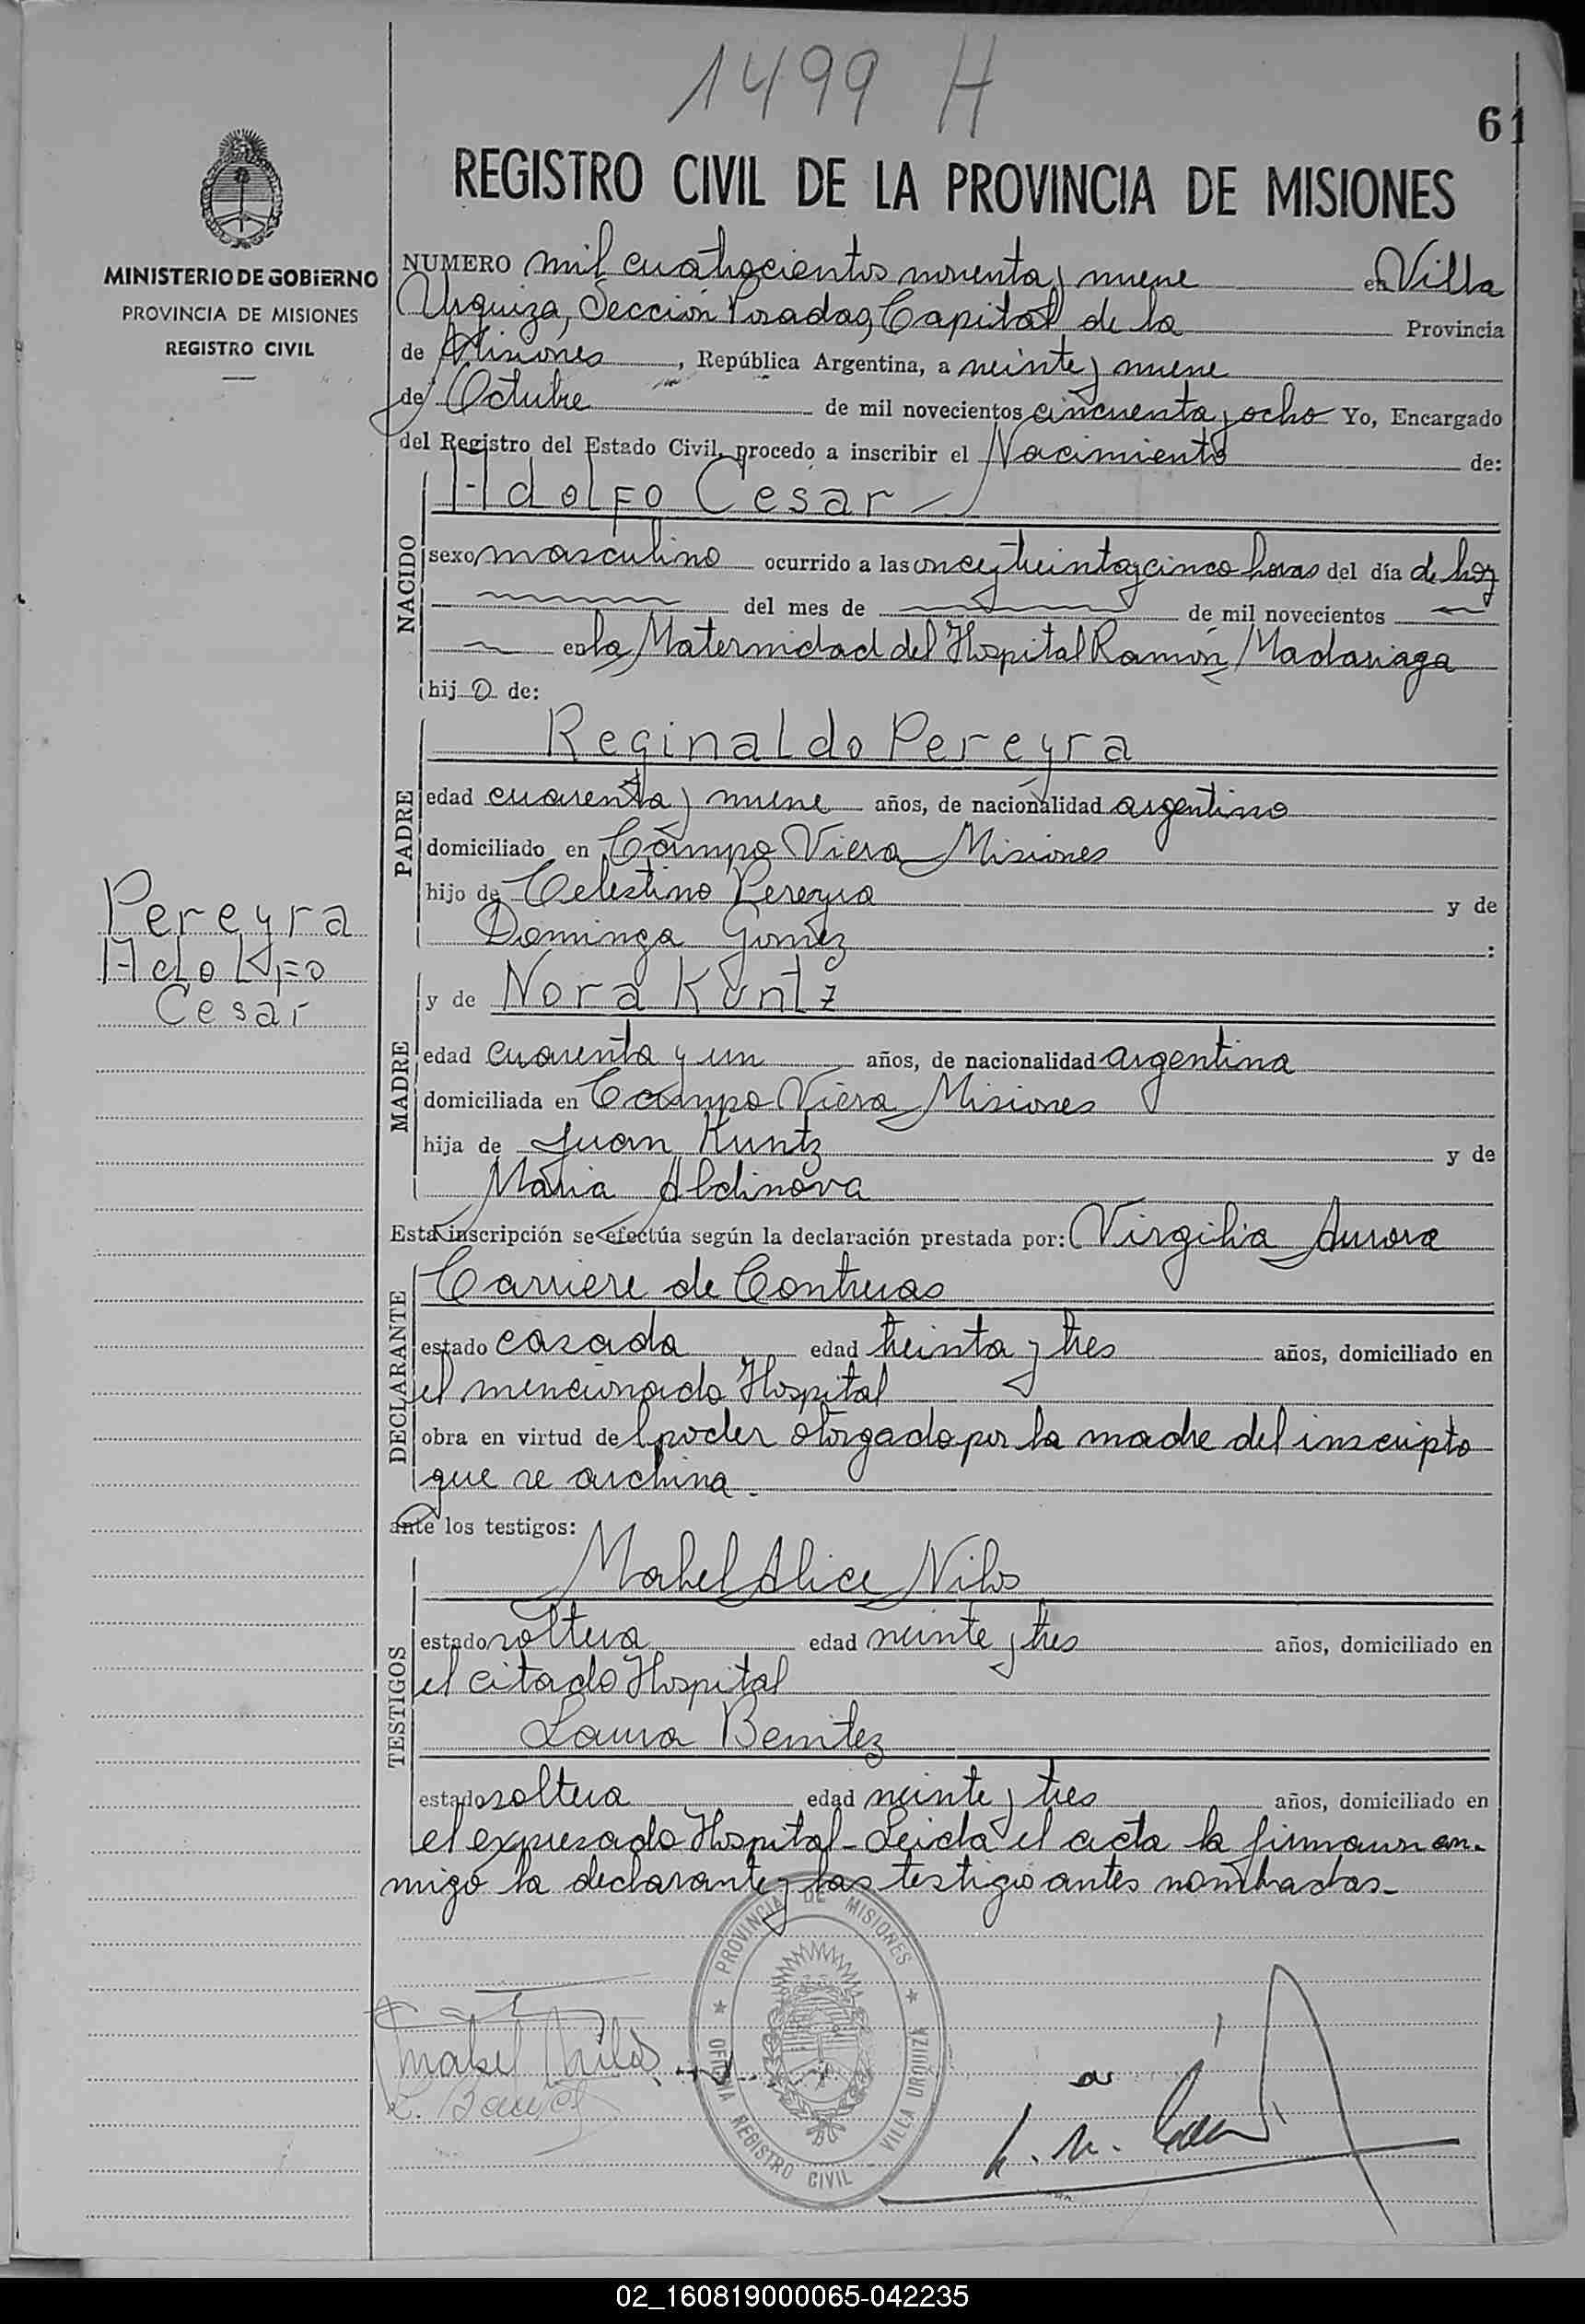 1499 H
61
REGISTRO CIVIL DE LA PROVINCIA DE MISIONES
MINISTERIO DE GOBIERNO
PROVINCIA DE MISIONES
REGISTRO CIVIL
NUMERO mil cuatrocientos noventa y nueve en Villa
Urquiza, Sección Posadas, Capital de la Provincia
de Misiones, República Argentina, a veinte y nueve
de Octubre de mil novecientos cincuenta y ocho Yo, Encargado
del Registro del Estado Civil, procedo a inscribir el Nacimiento de:
Adolfo Cesar
NACIDO
sexo masculino ocurrido a las once y treinta y cinco horas del día de hoy
del mes de de mil novecientos
en la Maternidad del Hospital Ramón Madariaga
hij o de:
Reginaldo Pereyra
PADRE
edad cuarenta y nueve años, de nacionalidad argentino
domiciliado en Campo Viera Misiones
hijo de Celestino Pereyra y de
Dominga Gomez :
Pereyra
Adolfo
Cesar
y de Nora Kuntz
MADRE
edad cuarenta y un años, de nacionalidad argentina
domiciliada en Campo Viera Misiones
hija de Juan Kuntz y de
Maria Aldinova
Esta inscripción se efectúa según la declaración prestada por: Virgilia Aurora
Carriere de Contreras
DECLARANTE
estado casada edad treinta y tres años, domiciliado en
el mencionado Hospital
obra en virtud del poder otorgado por la madre del inscripto
que se archiva.
ante los testigos:
Mabel Alice Nilos
TESTIGOS
estado soltera edad veinte y tres años, domiciliado en
el citado Hospital
Laura Benitez
estado soltera edad veinte y tres años, domiciliado en
el expresado Hospital - Leida el acta la firmaron con-
migo la declarante y las testigos antes nombradas.
PROVINCIA DE MISIONES
OFICINA REGISTRO CIVIL - VILLA URQUIZA
Mabel Nilos
02_160819000065-042235